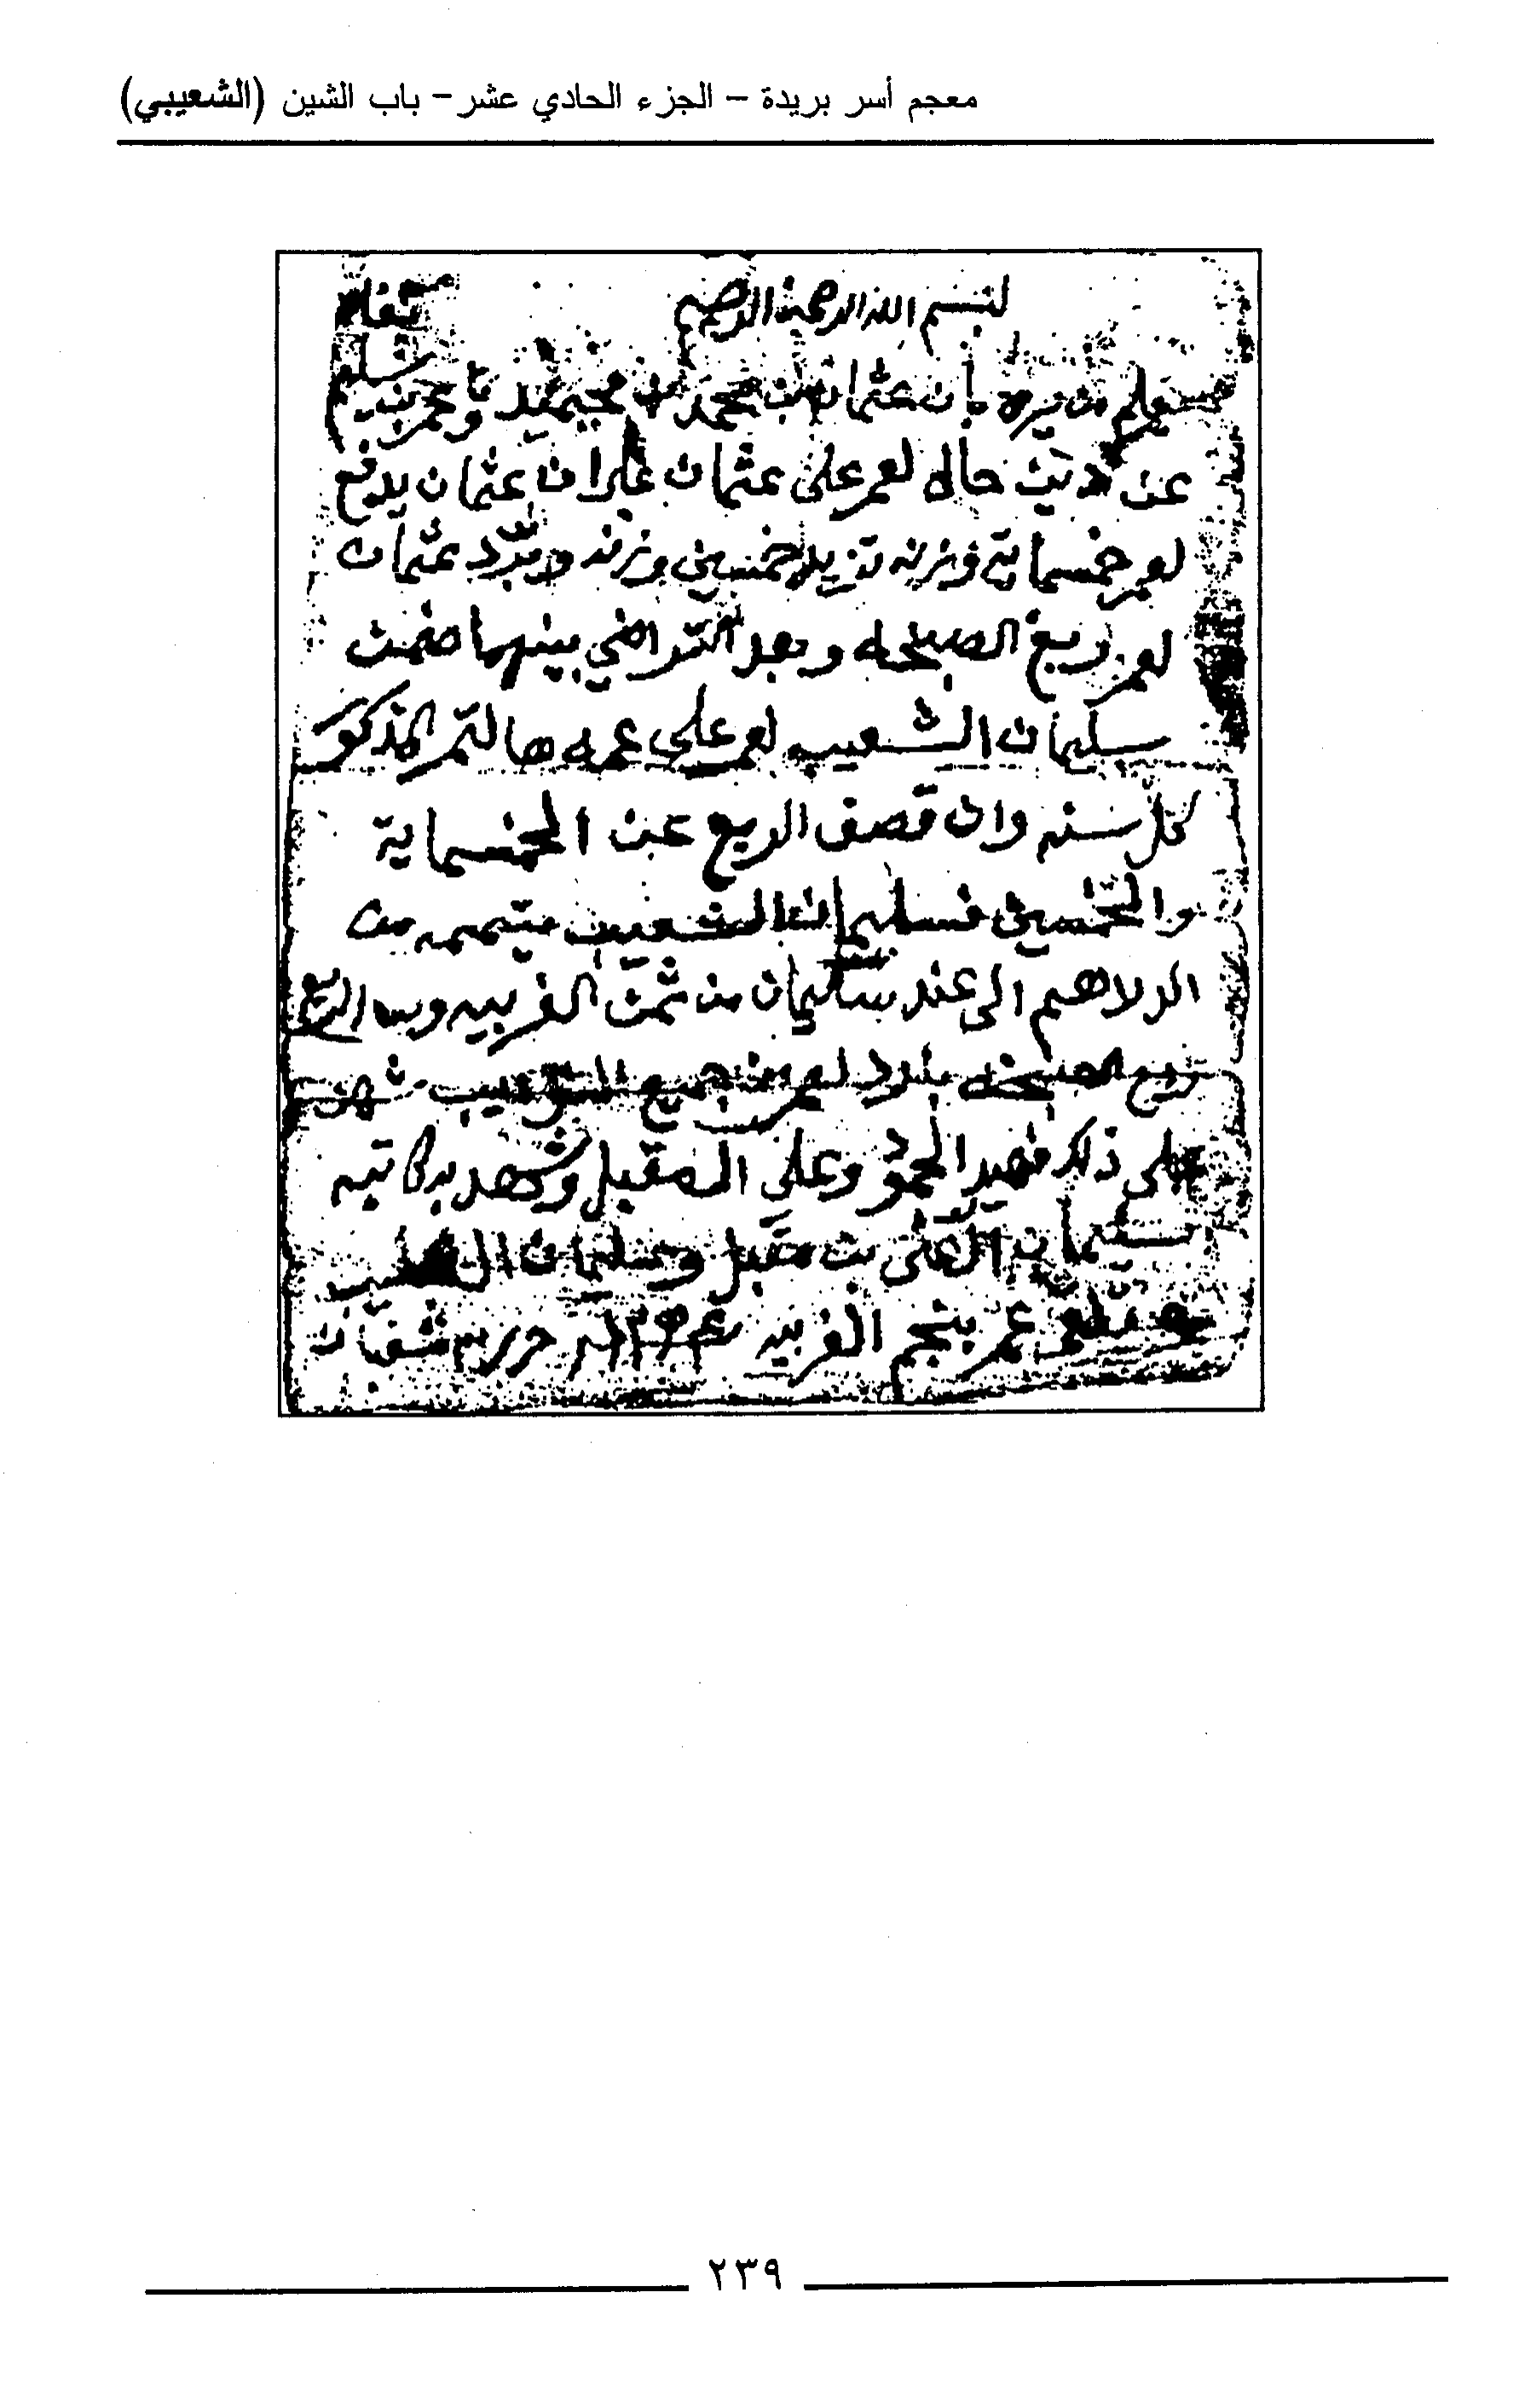 معجم أسر بريدة – الجزء الحادي عشر – باب الشين (الشعيبي)
بسم الله الرحمن الرحيم
يعلم من يره بأن عثمان بن محمد بن وعمر بن سليم
عن دين حاله لعمر على عثمان على ان عثمان يدفع
لعمر خمسماية وزنه تزيد خمسين وزنه ويرد عثمان
لعمر ربع الصبخه وبعد التراضي بينهما ضمن
سليمان الشعيب لعمر على عمه هالتمر المذكور
كل سنه وان قصف الريع عن الخمسماية
والخمسين فسليمان الشعيب متممه من
الدراهم الى عند سليمان من ثمن الغربيه
ربع الصبخه لعمر من جميع شهد
على ذلك فهيد الحمود وعلى المقبل وشهد به كاتبه
سليمان العلى بن مقبل وسليمان
عمر بنجم الغربيه شعبان
٢٣٩